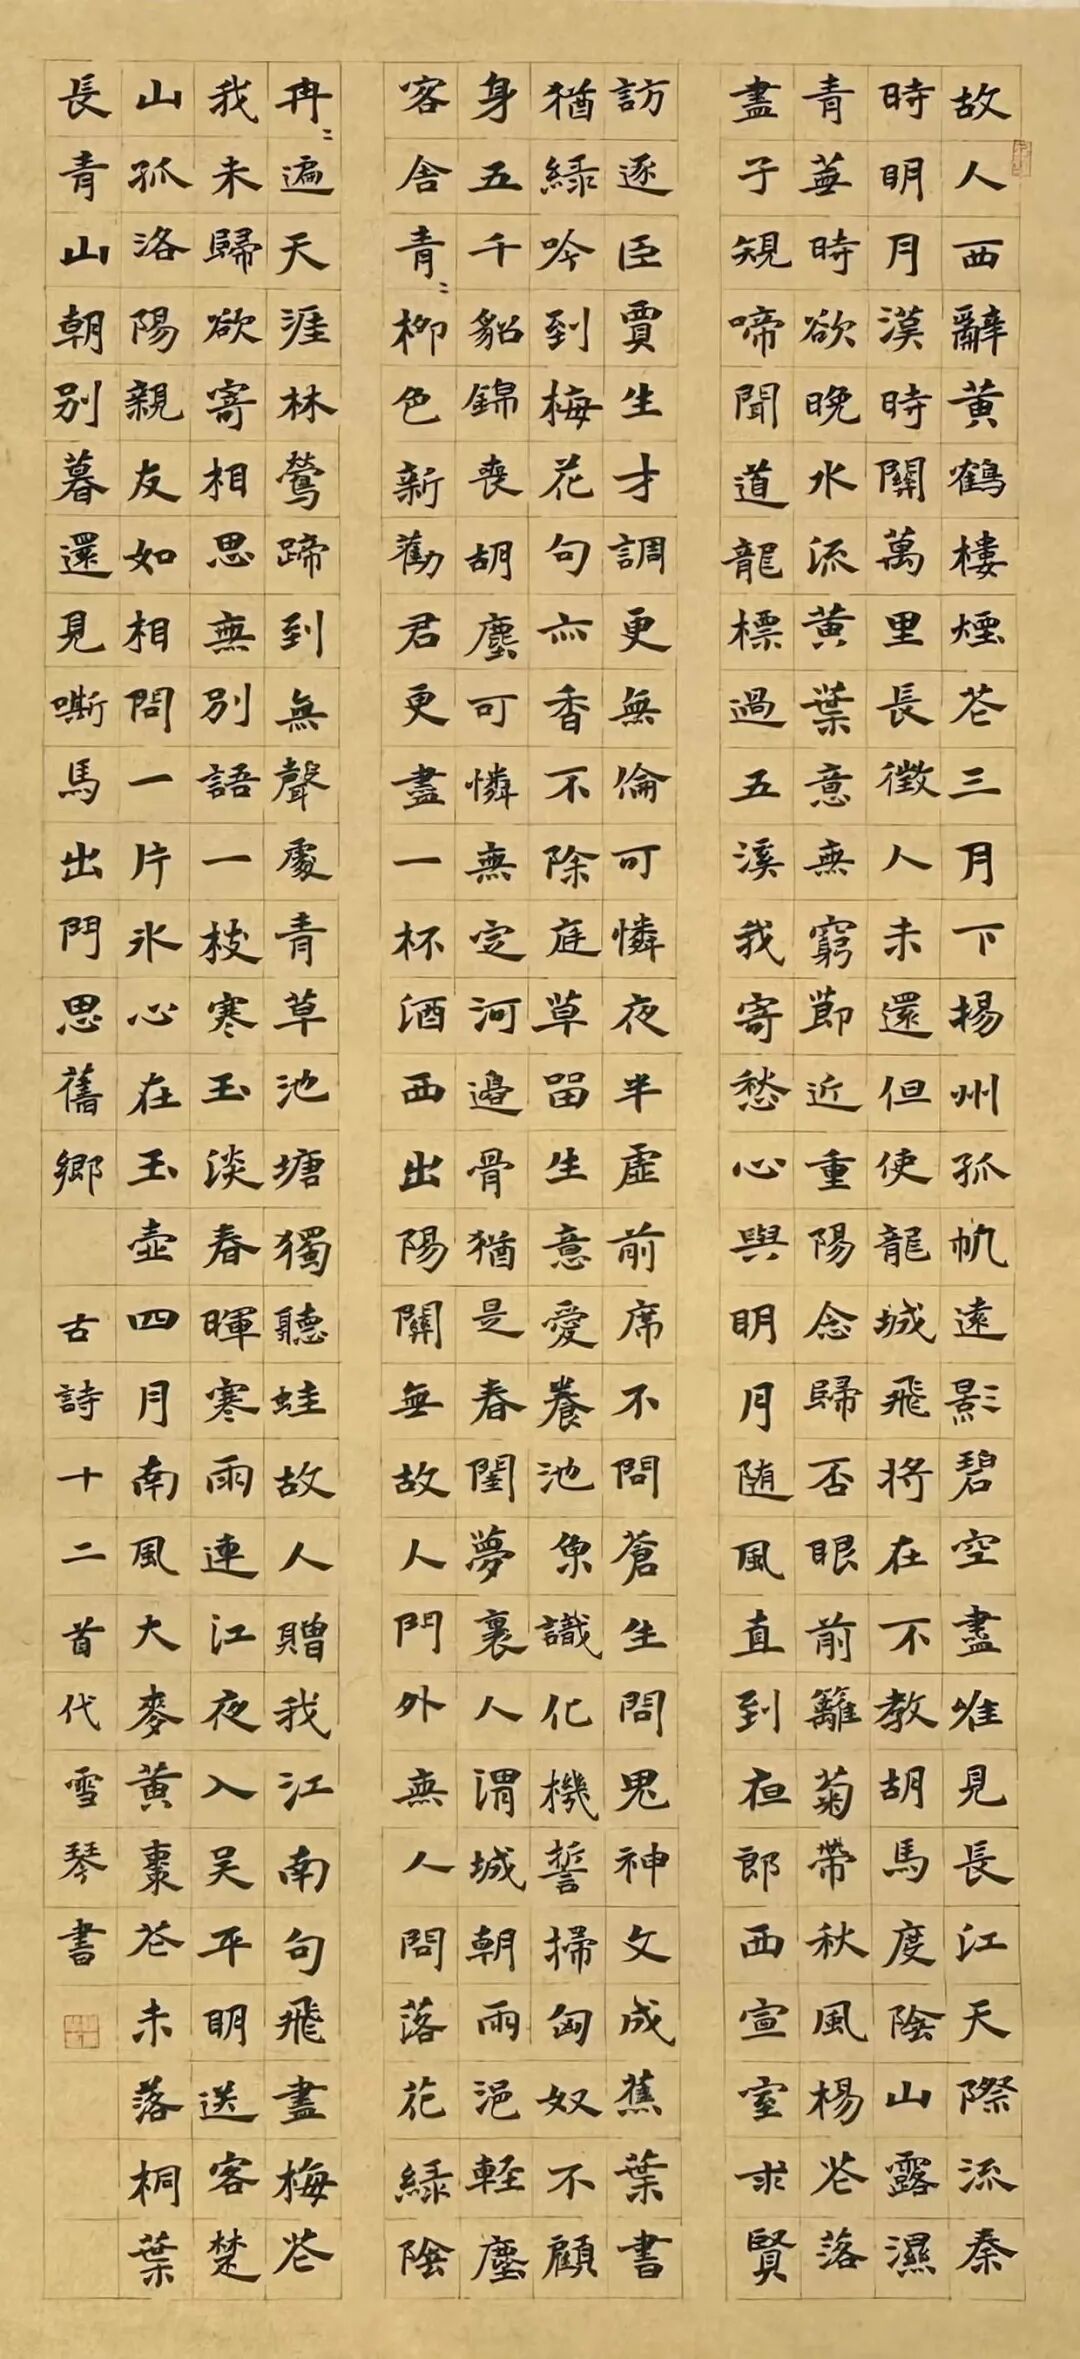 故人西辭黃鶴樓煙花三月下揚州孤帆遠影碧空盡唯見長江天際流秦
時明月漢時關萬里長徵人未還但使龍城飛將在不教胡馬度陰山露濕
青蕪時欲晚水流黃葉意無窮節近重陽念歸否眼前籬菊帶秋風楊花落
盡子規啼聞道龍標過五溪我寄愁心與明月随風直到夜郎西宣室求賢
訪逐臣賈生才調更無倫可憐夜半虛前席不問蒼生問鬼神文成蕉葉書
猶綠吟到梅花句亦香不除庭草留生意愛養池魚識化機誓掃匈奴不顧
身五千貂錦喪胡塵可憐無定河邊骨猶是春閨夢裏人渭城朝雨浥輕塵
客舍青〻柳色新勸君更盡一杯酒西出陽關無故人門外無人問落花綠陰
冉〻遍天涯林鶯蹄到無聲處青草池塘獨聽蛙故人贈我江南句飛盡梅花
我未歸欲寄相思無別語一枝寒玉淡春暉寒雨連江夜入吳平明送客楚
山孤洛陽親友如相問一片冰心在玉壺四月南風大麥黃棗花未落桐葉
長青山朝別暮還見嘶馬出門思舊鄉 古詩十二首代雪琴書